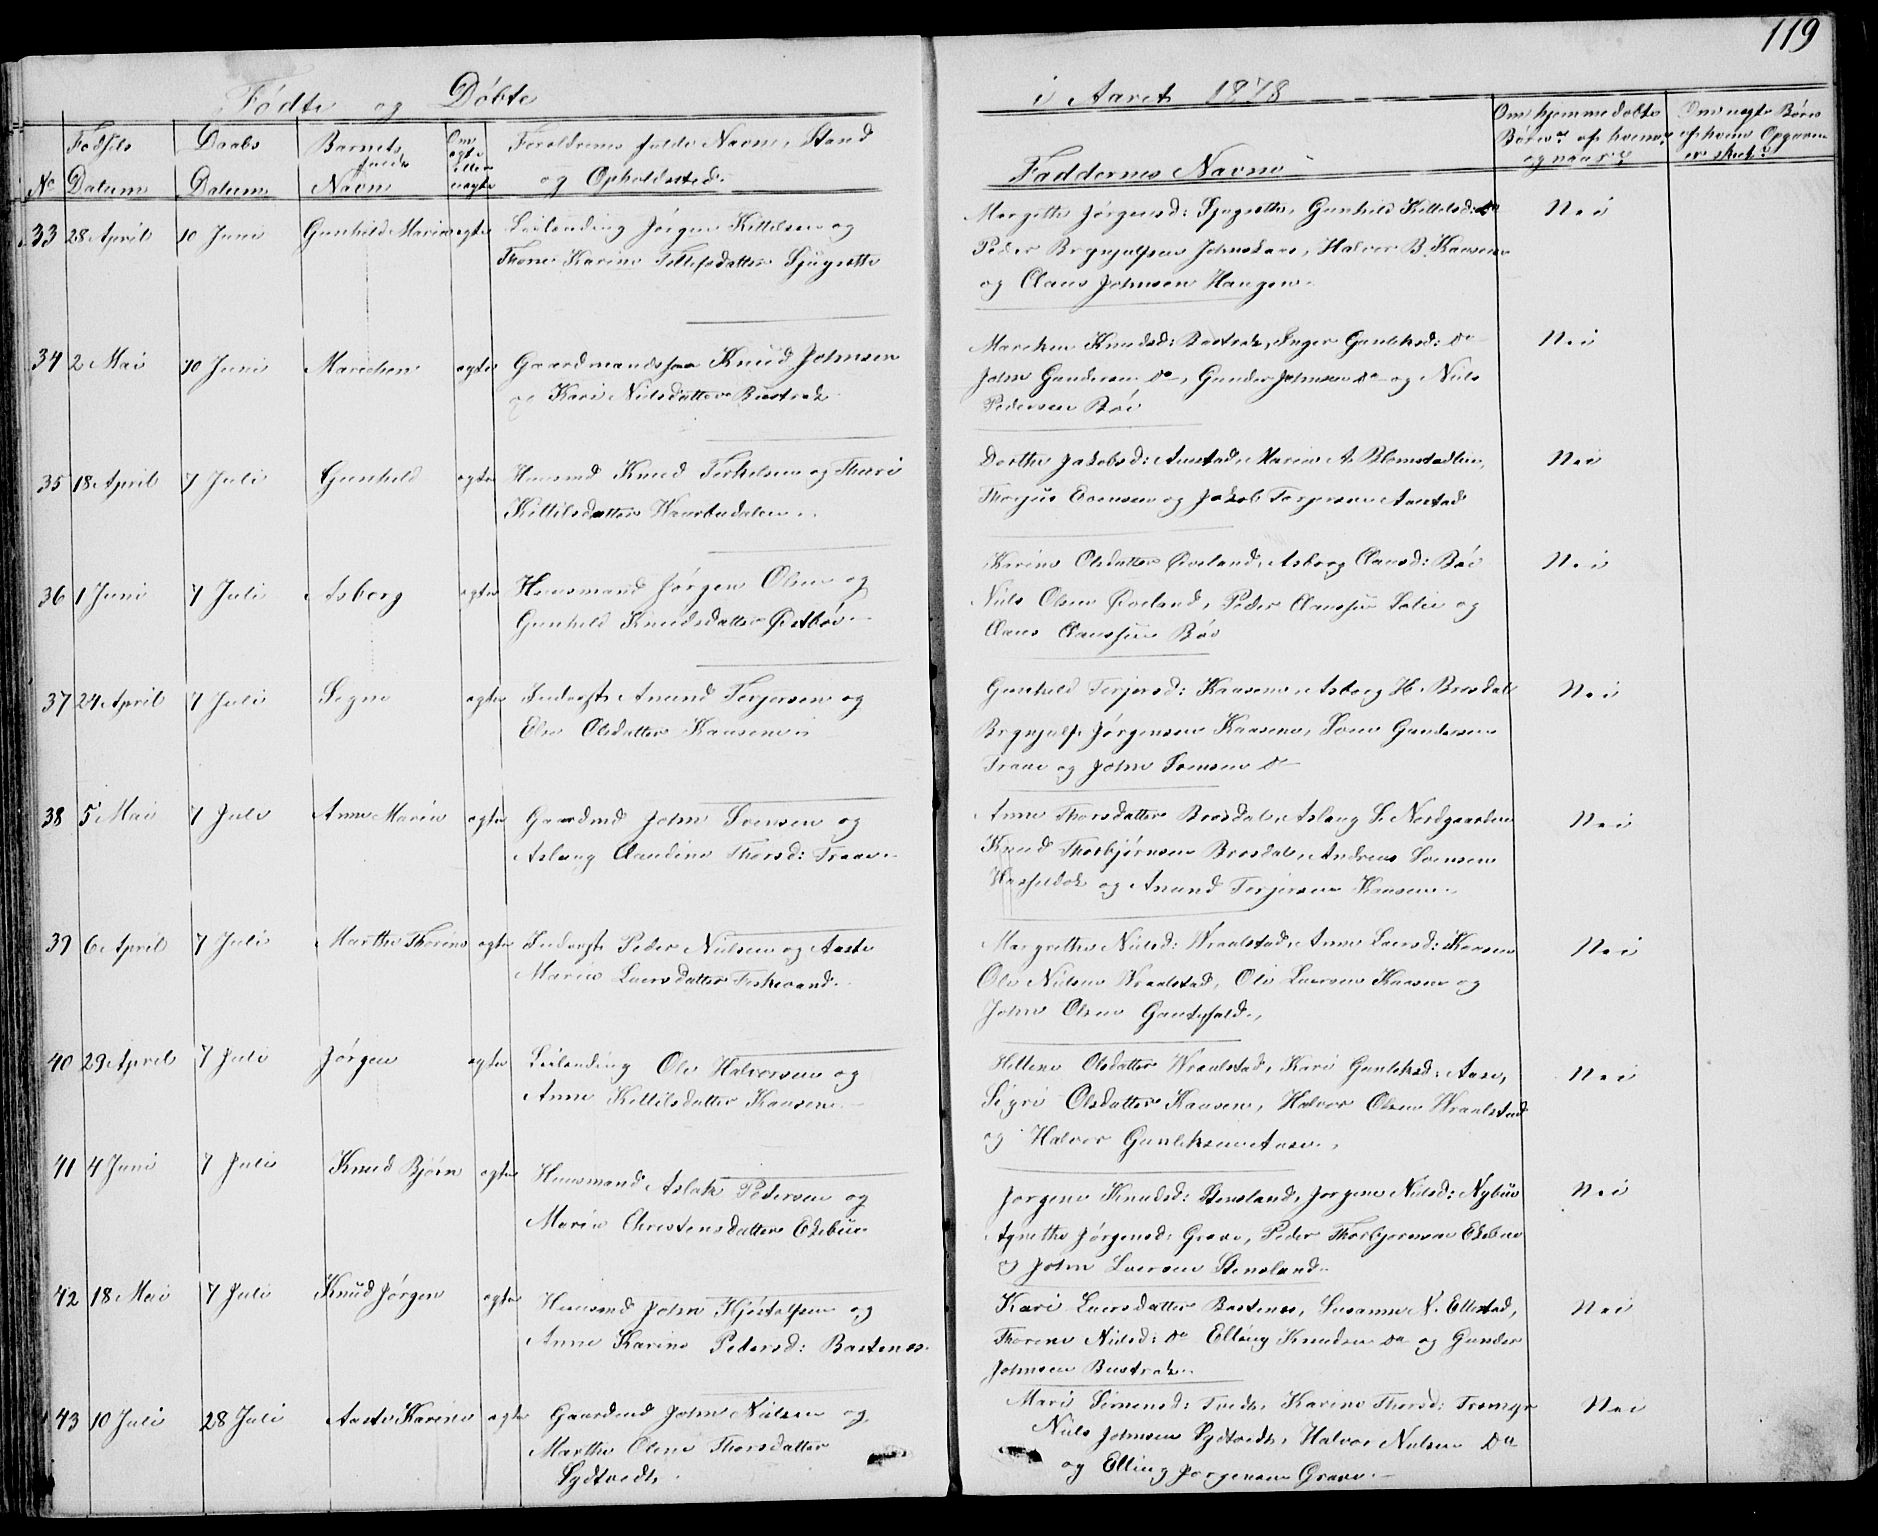 119
Fødte og Døbte i Aaret 1878
No
Fødsels Datum
Daabs Datum
Barnets fulde Navn
Om ægte eller uægte
Foreldrenes fulde Navne, Stand og Opholdssted.
Faddernes Navne
Om hjemmedøbte Børn, af hvem og naar
Om uægte Børn af hvem Opgaven er skeet
33 28 April 10 Juni Gunhild Maria ægte Leilending Jørgen Kittelsen og
Thone Karine Tellefsdatter Ljugrotte
Margethe Jørgensd: Ljugrotte, Gunhild Kittelsd: Do
Peder Brynjulfsen Johnskaas, Halvor B. Kaasene
og Claus Johnsen Haugen.
Nei
34 2 Mai 10 Juni Marichen ægte Gaardmandssøn Knud Johnsen
og Kari Nielsdatter Bustrak
Marichen Knudsd: Bustrak, Inger Gunleksd: Do
John Gundersen Do, Gunder Johnsen Do og Niels
Pedersen Bøe
Nei
35 18 April 7 Juli Gunhild ægte Huusmd Knud Terkelsen og Thari
Kittilsdatter Haarbudalen.
Dorthe Jakobsd: Aanstad, Maria A. Blomstadlien,
Thorjus Evensen og Jakob Torjersen Aanstad
Nei
36 1 Juni 7 Juli Asborg ægte Huusmand Jørgen Olsen og
Gunhild Knudsdatter Østbøe
Karine Olsdatter Øveland, Asborg Clausd: Bøe
Niels Olsen Øveland, Peder Claussen Solie og
Claus Claussen Bøe
Nei
37 24 April 7 Juli Signe ægte Inderst Anund Terjersen og
Else Olsdatter Kaasene
Gunhild Terjersd: Kaasene, Asborg H. Brosdal
Brynjulf Jørgensen Kaasene, Soen Gundersen
Traae og John Soensen Do
Nei
38 5 Mai 7 Juli Anne Maria ægte Gaardmd John Soensen og
Aslaug Claudine Thorsd: Traae
Anne Thorsdatter Brosdal, Aslaug S. Nordgaarden
Knud Thorbjørnsen Brosdal, Andreas Soensen
og Anund Terjersen Kaasene.
Nei
39 6 April 7 Juli Marthe Thorine ægte Inderst Peder Nielsen og Aaste
Maria Laersdatter Fiskvand.
Margrethe Nielsd: Vraalstad, Anne Laersd: Kaasene
Ole Nielsen Vraalstad, Ole Laersen Kaasene og
John Olsen Gautefald,
Nei
40 29 April 7 Juli Jørgen ægte Leilending Ole Halvorsen og
Anne Kittilsdatter Kaasene.
Hellene Olsdatter Vraalstad, Kari Gunleksd: Aase,
Sigri Olsdatter Kaasene, Halvor Olsen Vraalstad
og Halvor Gunleksen Aase,
Nei
41 4 Juni 7 Juli Knud Bjørn ægte Huusmand Aslak Pedersen og
Maria Christensdatter Ekebue
Jørgene Knudsd: Stensland, Jørgene Nielsd: Nybue
Agnethe Jørgensd: Grave, Peder Thorbjørnsen Ekebue
og John Laersen Stensland.
Nei
42 18 Mai 7 Juli Knud Jørgen ægte Huusmd John Kjøstolfsen og
Anne Karine Pedersd: Bastenes.
Kari Laersdatter Bastenes, Susanne N. Ellestad,
Thorine Nielsd: Do Elling Knudsen Do og Gunder
Johnsen Bustrak.
Nei
43 10 Juli 28 Juli Aaste Karine ægte Gaardmd John Nielsen og
Marthe Oline Thorsdatter
Sydtvedt.
Mari Simensd: Tvedt, Karine Thorsd:
Niels Johnsen Sydtvedt, Halvor Nielsen Do
og Elling Jørgensen Grave.
Nei